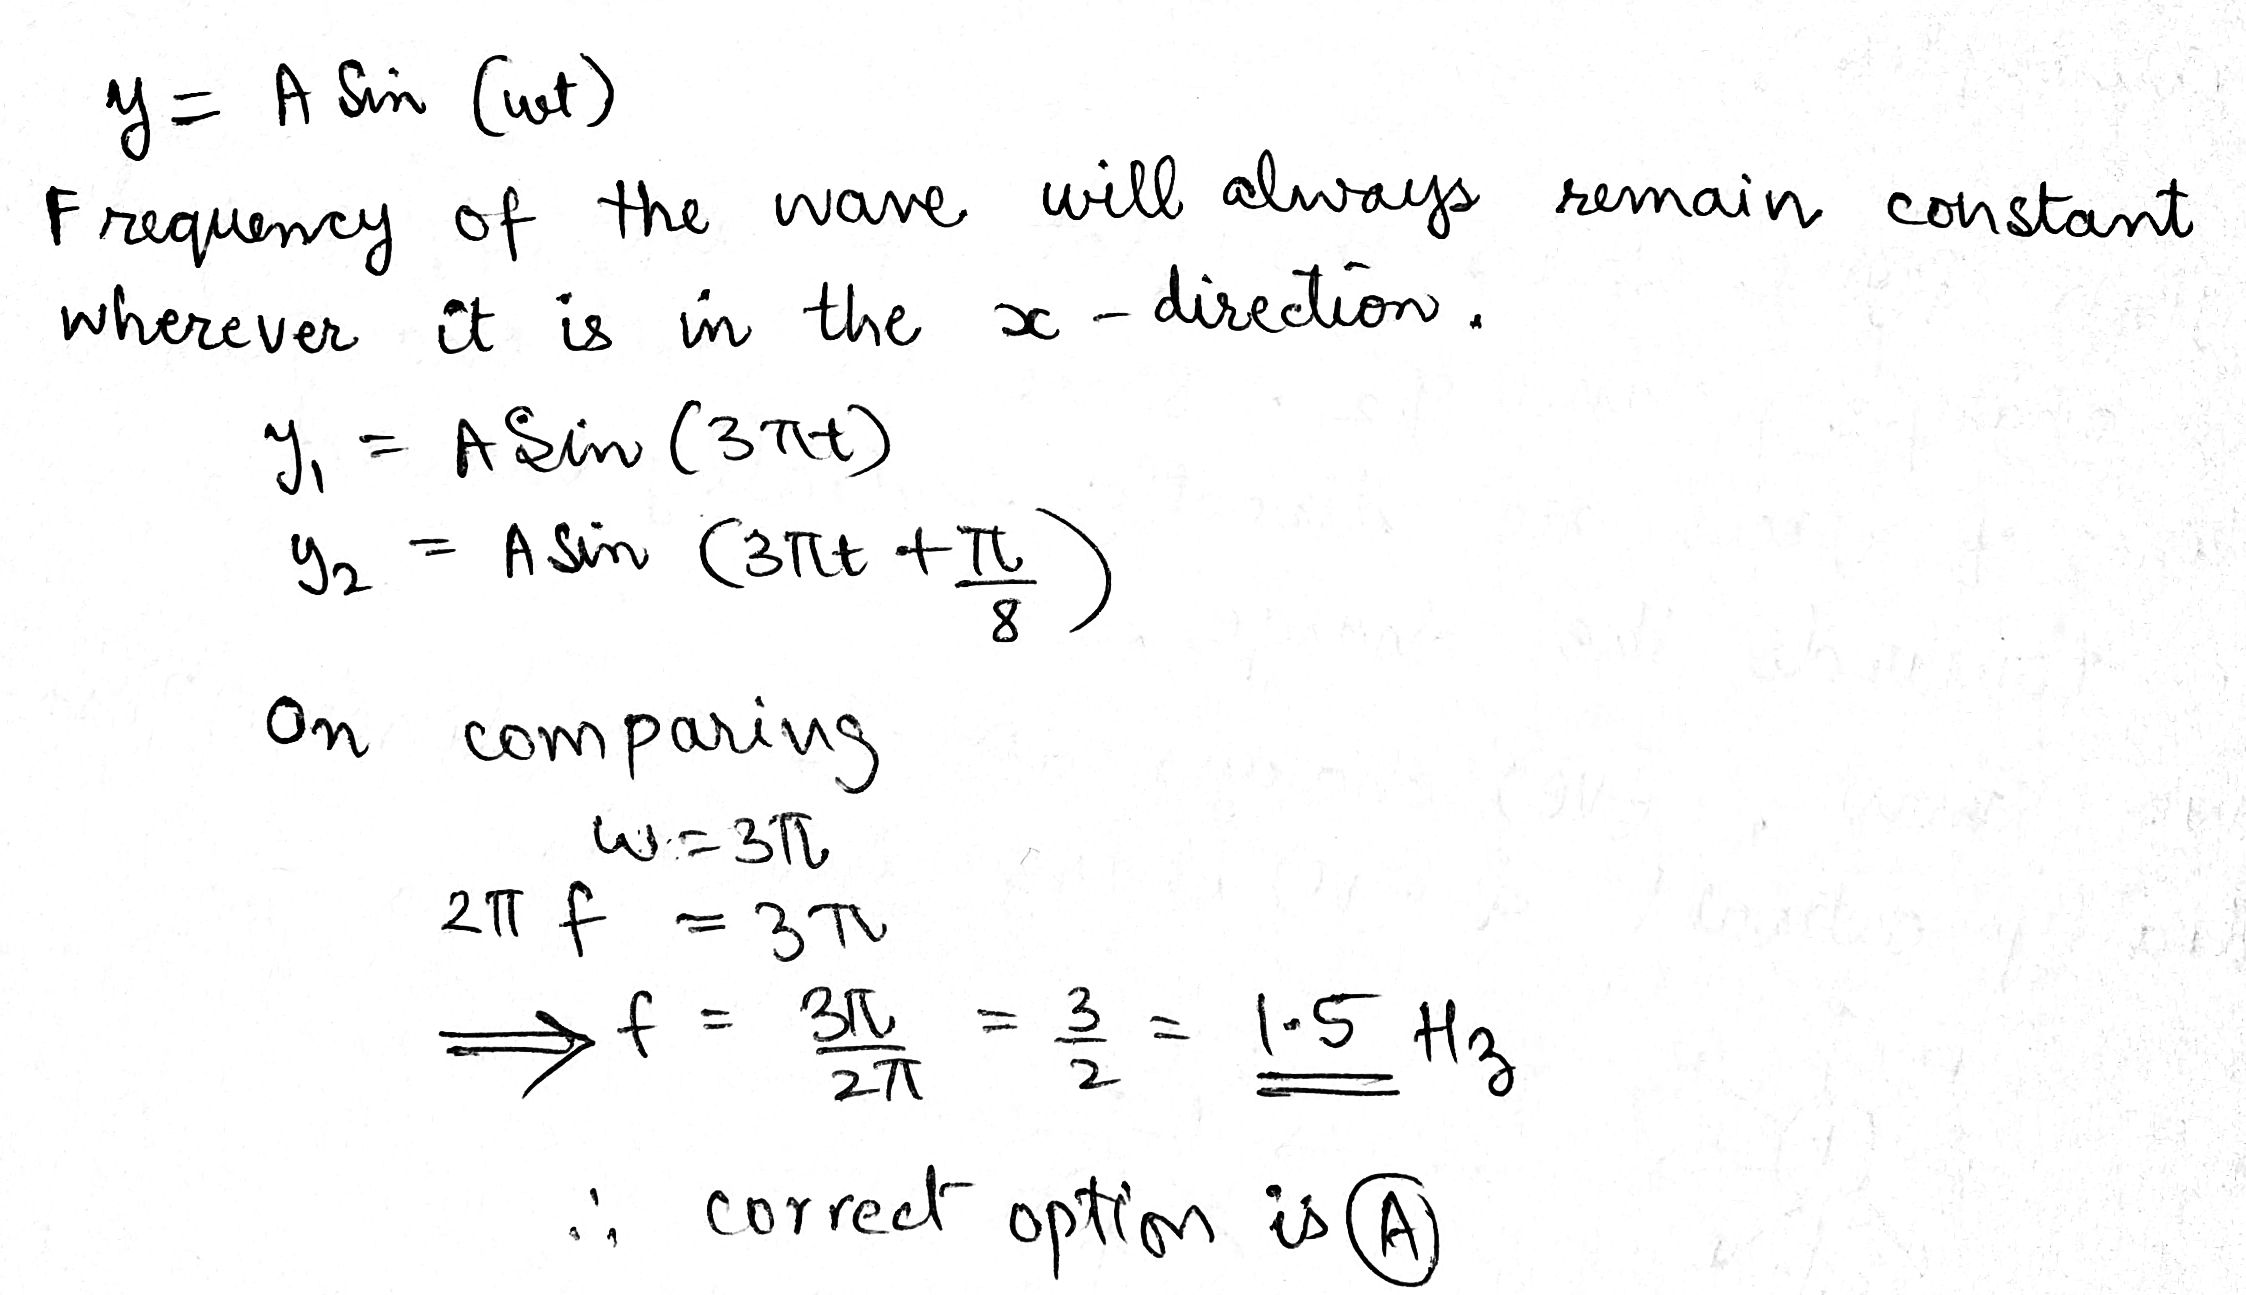 y = A Sin (wt)
Frequency of the wave will always remain constant
wherever it is in the x - direction.
y₁ = A Sin (3πt)
y₂ = A Sin (3πt + π/8)
On comparing
w = 3π
2π f = 3π
⟹ f = 3π/2π = 3/2 = 1.5 Hz
∴ correct option is (A)